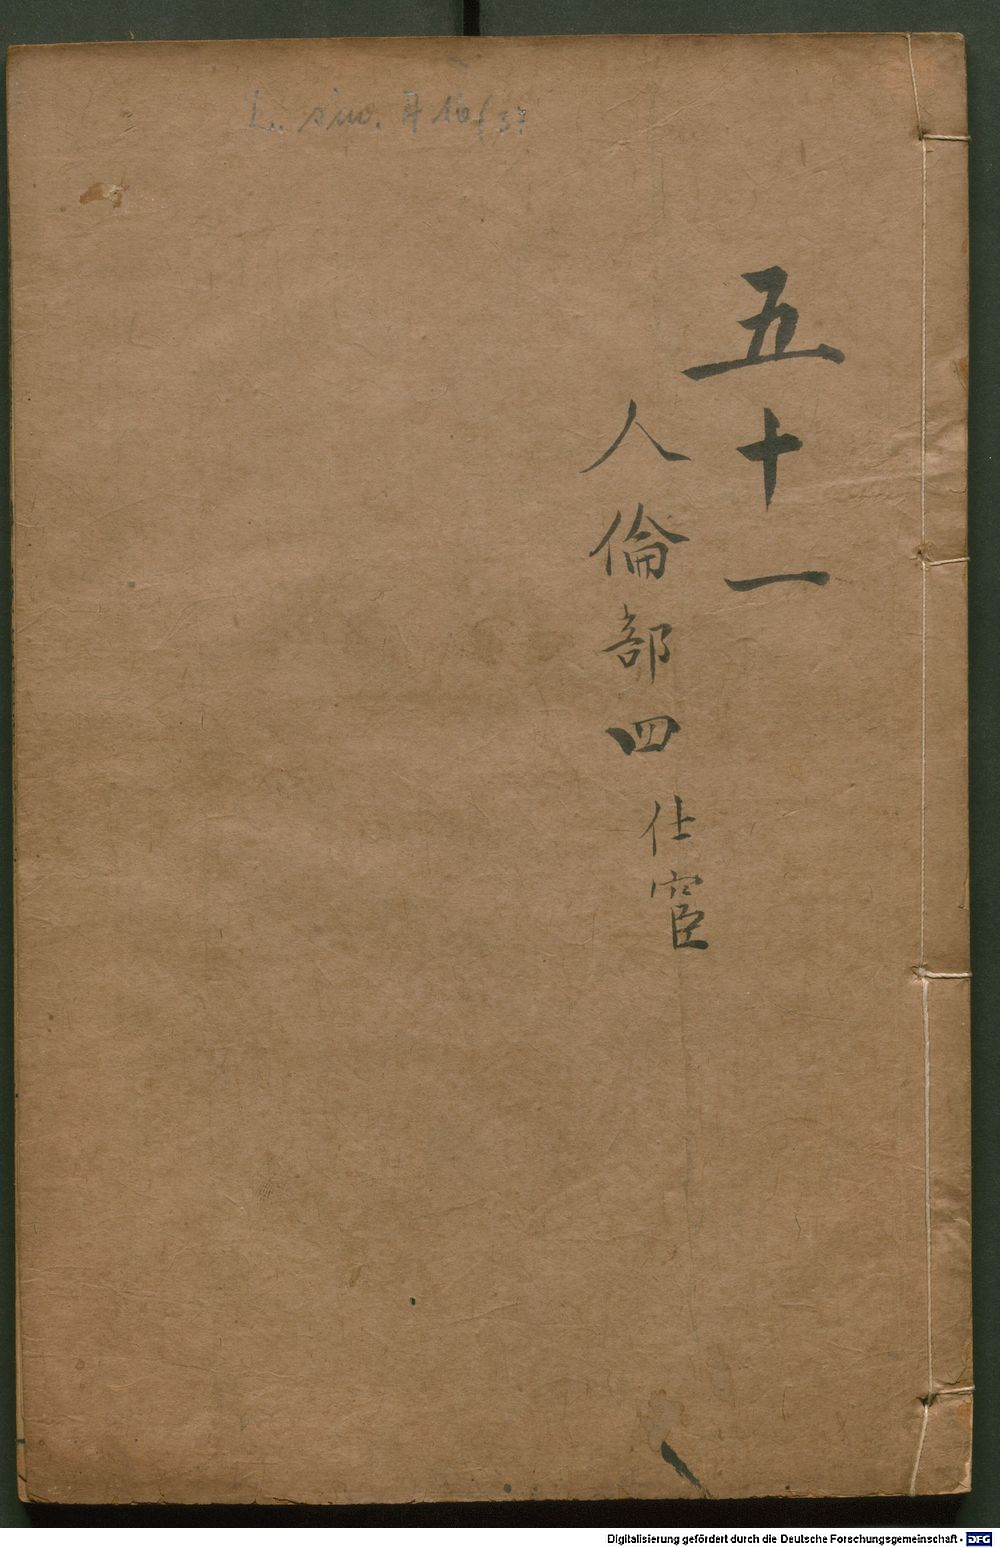 L. sin. A 16/37
五十一
人倫部四 仕宦
Digitalisierung gefördert durch die Deutsche Forschungsgemeinschaft - DFG